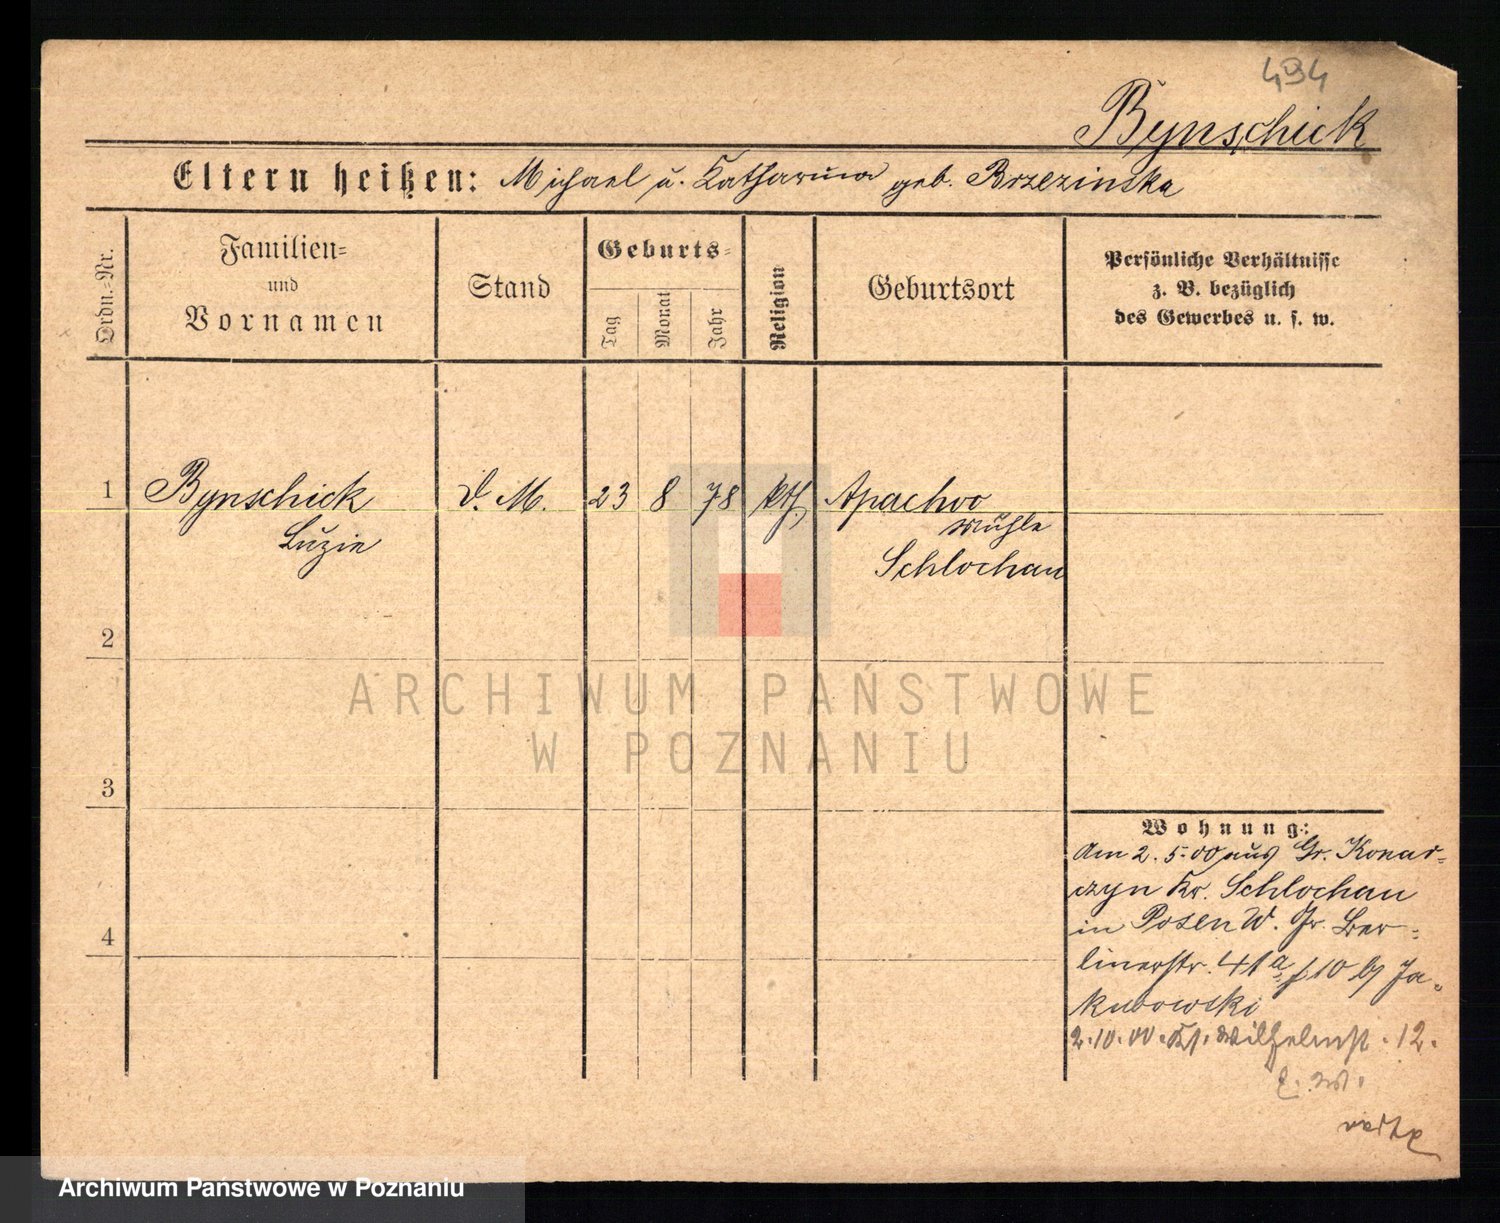 494
Bynschick
Eltern heißen: Michael u. Katharina geb. Brzezinska
Ordn.-Nr.
Familien-
und
Vornamen
Stand
Geburts-
Tag
Monat
Jahr
Religion
Geburtsort
Persönliche Verhältnisse
z. B. bezüglich
des Gewerbes u. s. w.
1 Bynschick D. M. 23 8 78 kth. Apachoo
Luzie mühle
Schlochau
2
3
4
ARCHIWUM PAŃSTWOWE
W POZNANIU
Wohnung:
Am 2. 5. 00 aus Gr. Konar-
czyn Kr. Schlochau
in Posen W. Gr. Ber-
linerstr. 41a 10 b/ Ja-
kubowski
2. 10. 00. Wilhelmst. 12.
Archiwum Państwowe w Poznaniu